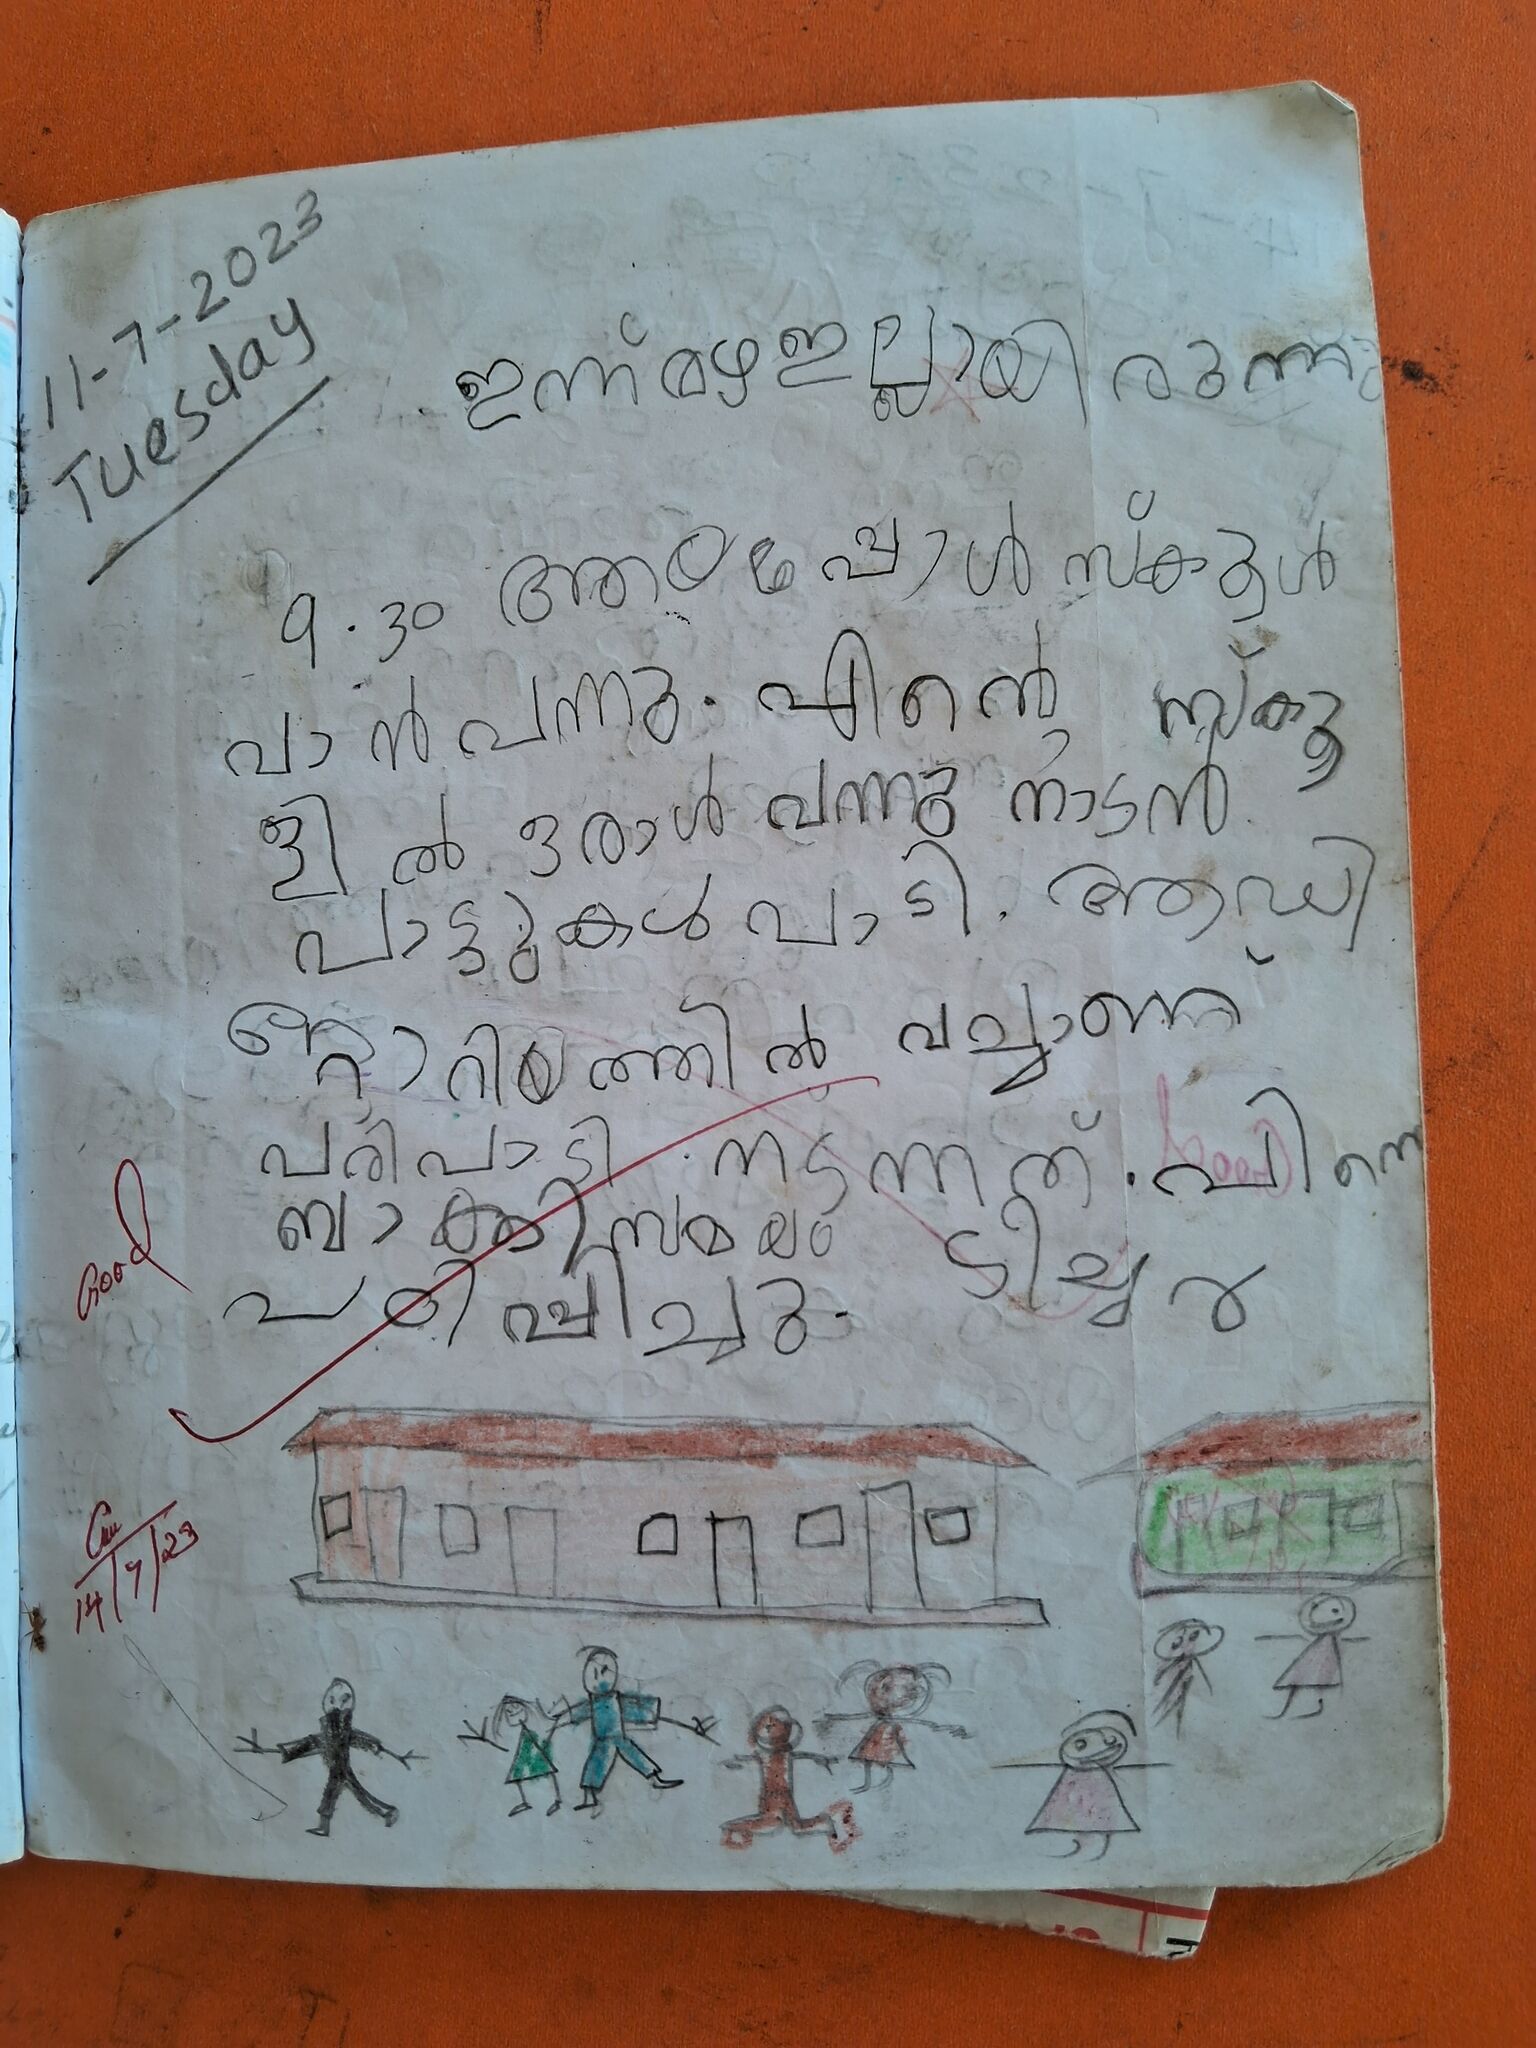 11-7-2023
Tuesday
ഇന്ന് മഴ ഇല്ലായിരുന്നു
9.30 ആയപ്പോൾ സ്കൂൾ
വാൻ വന്നു. എന്റെ സ്കൂ
ളിൽ ഒരാൾ വന്നു നാടൻ
പാട്ടുകൾ പാടി. ആഡി
റ്റോറിയത്തിൽ വച്ചാണ്
പരിപാടി നടന്നത്. പിന്നെ
ബാക്കി സമയം ടീച്ചർ
പഠിപ്പിച്ചു.
Good
14/7/23